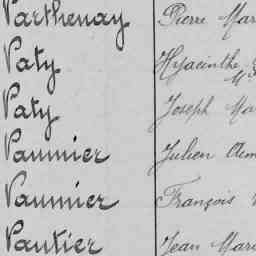 Parthenay Pierre Mar
Paty Hyacinthe
Paty Joseph Ma
Paumier Julien
Paumier François
Pautier Jean Mari